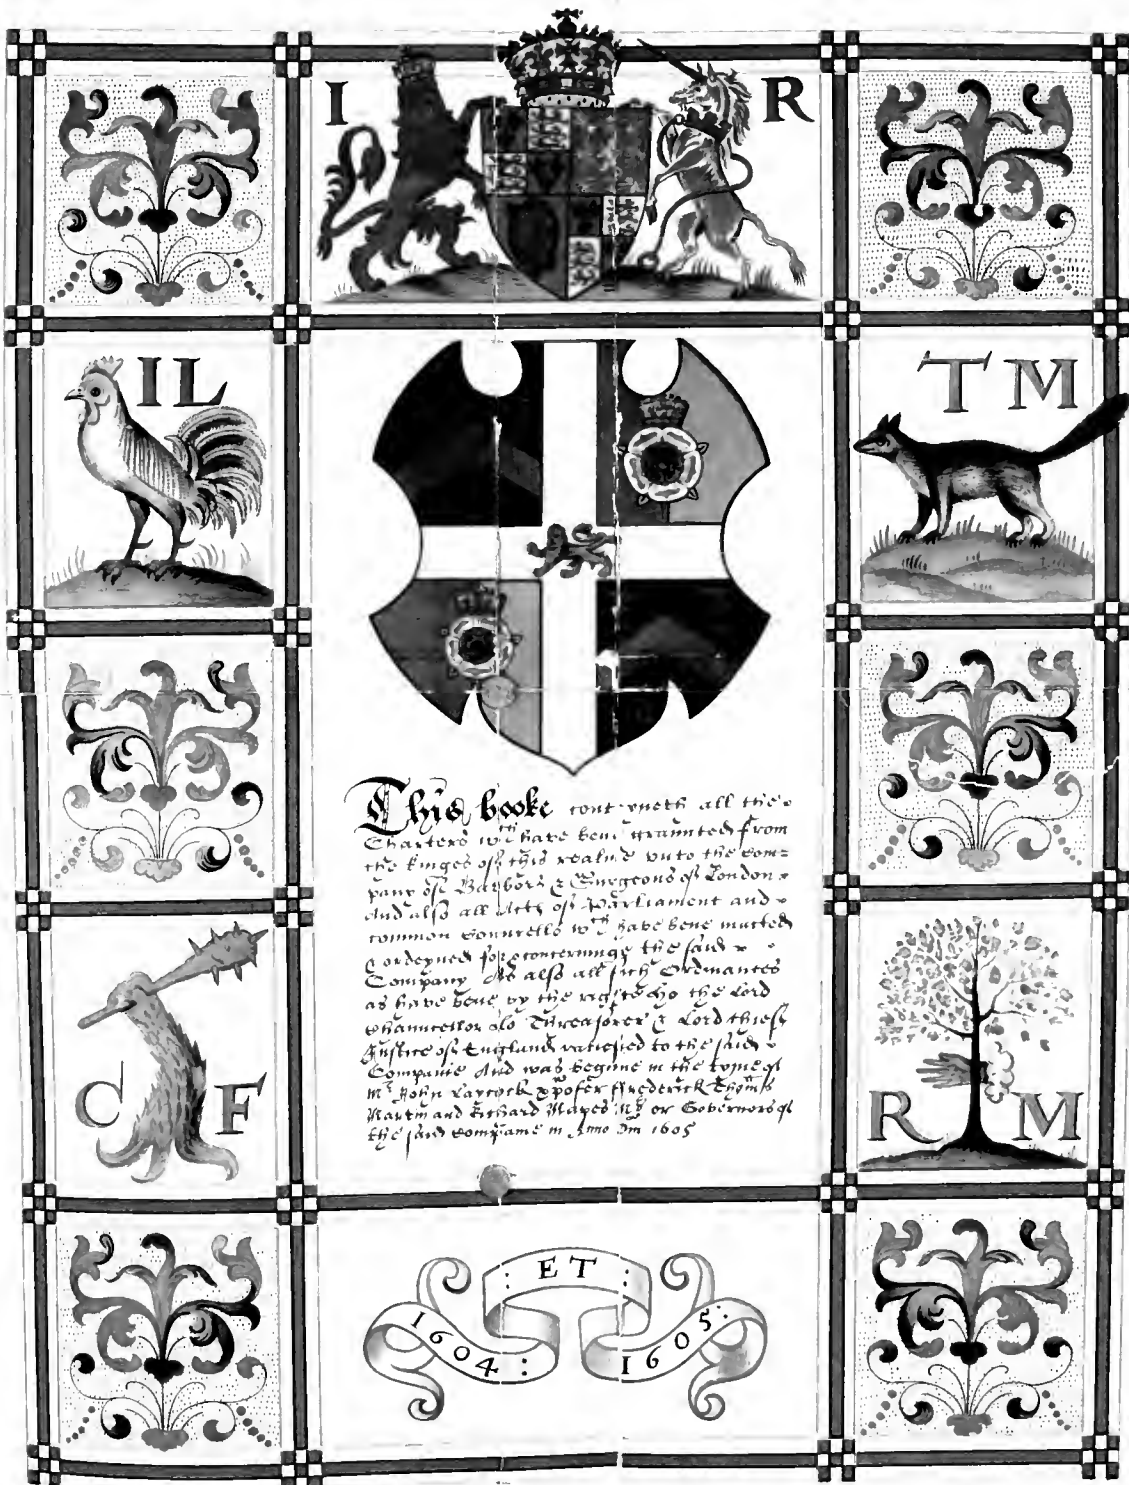 I R
IL
T M
This booke conteyneth all the
Charters wch have bene graunted from
the kinges of this realme unto the com=
pany of Barbors & Surgeons of London
And also all Acts of Parliament and
common Councells wch have bene enacted
& ordeyned for & concerninge the said
Company As also all such Ordinances
as have bene by the right Ho the Lord
Chauncellor Lo Threasorer & Lord chief
Justice of England ratiefied to the said
Companie And was begune in the tyme of
Mr John Laycock Xpofer Frederick Thoms
Martin and Richard Mapes Mrs or Governors of
the said Companie in Anno Dm 1605
C F
R M
: ET :
1604 : 1605 :